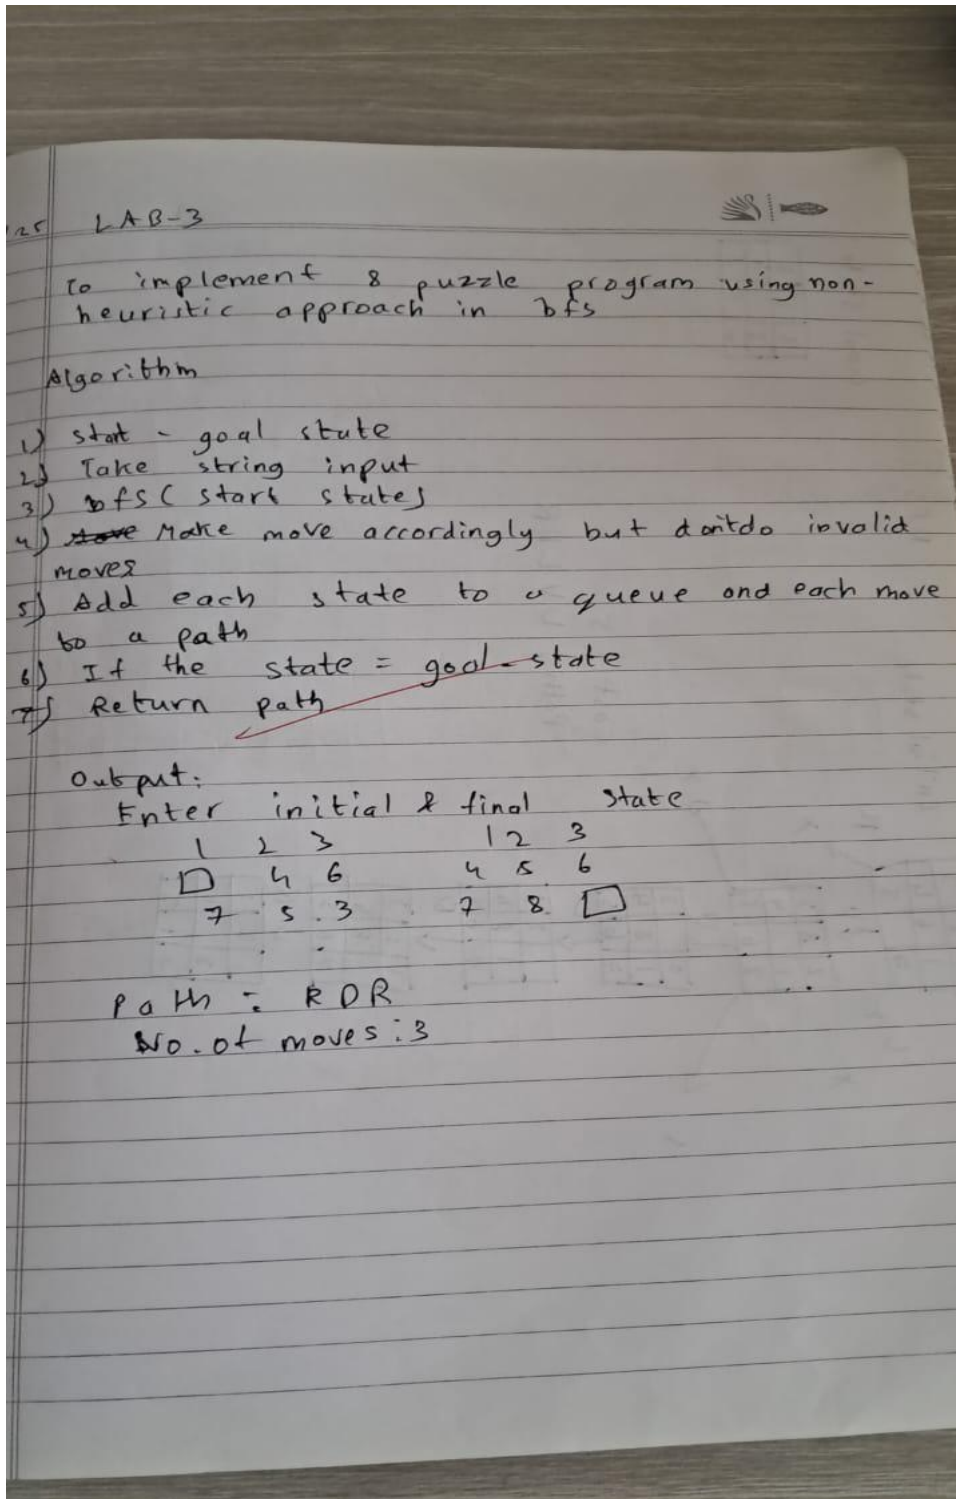 25 LAB-3
To implement 8 puzzle program using non-
heuristic approach in bfs
Algorithm
1) start - goal state
2) Take string input
3) bfs( start state)
4) Make move accordingly but dontdo invalid
moves
5) Add each state to a queue and each move
to a path
6) If the state = goal-state
7) Return path
Output:
Enter initial & final state
1 2 3 1 2 3
□ 4 6 4 5 6
7 5 3 7 8 □
Path : RDR
No. of moves : 3